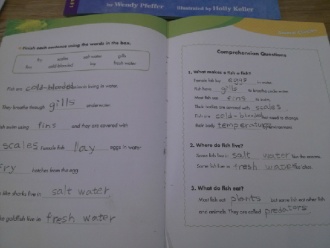 by Wendy Pfeffer illustrated by Holly Keller
Finish each sentence using the words in the box.
fins water salt water gills
fry cold-blooded lay fresh water
Fish are cold-blooded
They breathe through gills underwater.
fish swim using fins and they are covered with
scales Female fish lay eggs in water.
fry hatches from the egg
like sharks live in salt water
like goldfish live in fresh water
Comprehension Questions
1. What makes a fish a fish?
Female fish lay eggs in water.
Fish have gills to breathe under water.
fins to swim.
Their bodies are covered with scales
Fish are cold-blooded
Their body temperature
2. Where do fish live?
Some fish live in salt water like the oceans.
Some fish live in fresh water like
3. What do fish eat?
Most fish eat plants but some fish eat other fish
and animals. They are called predators